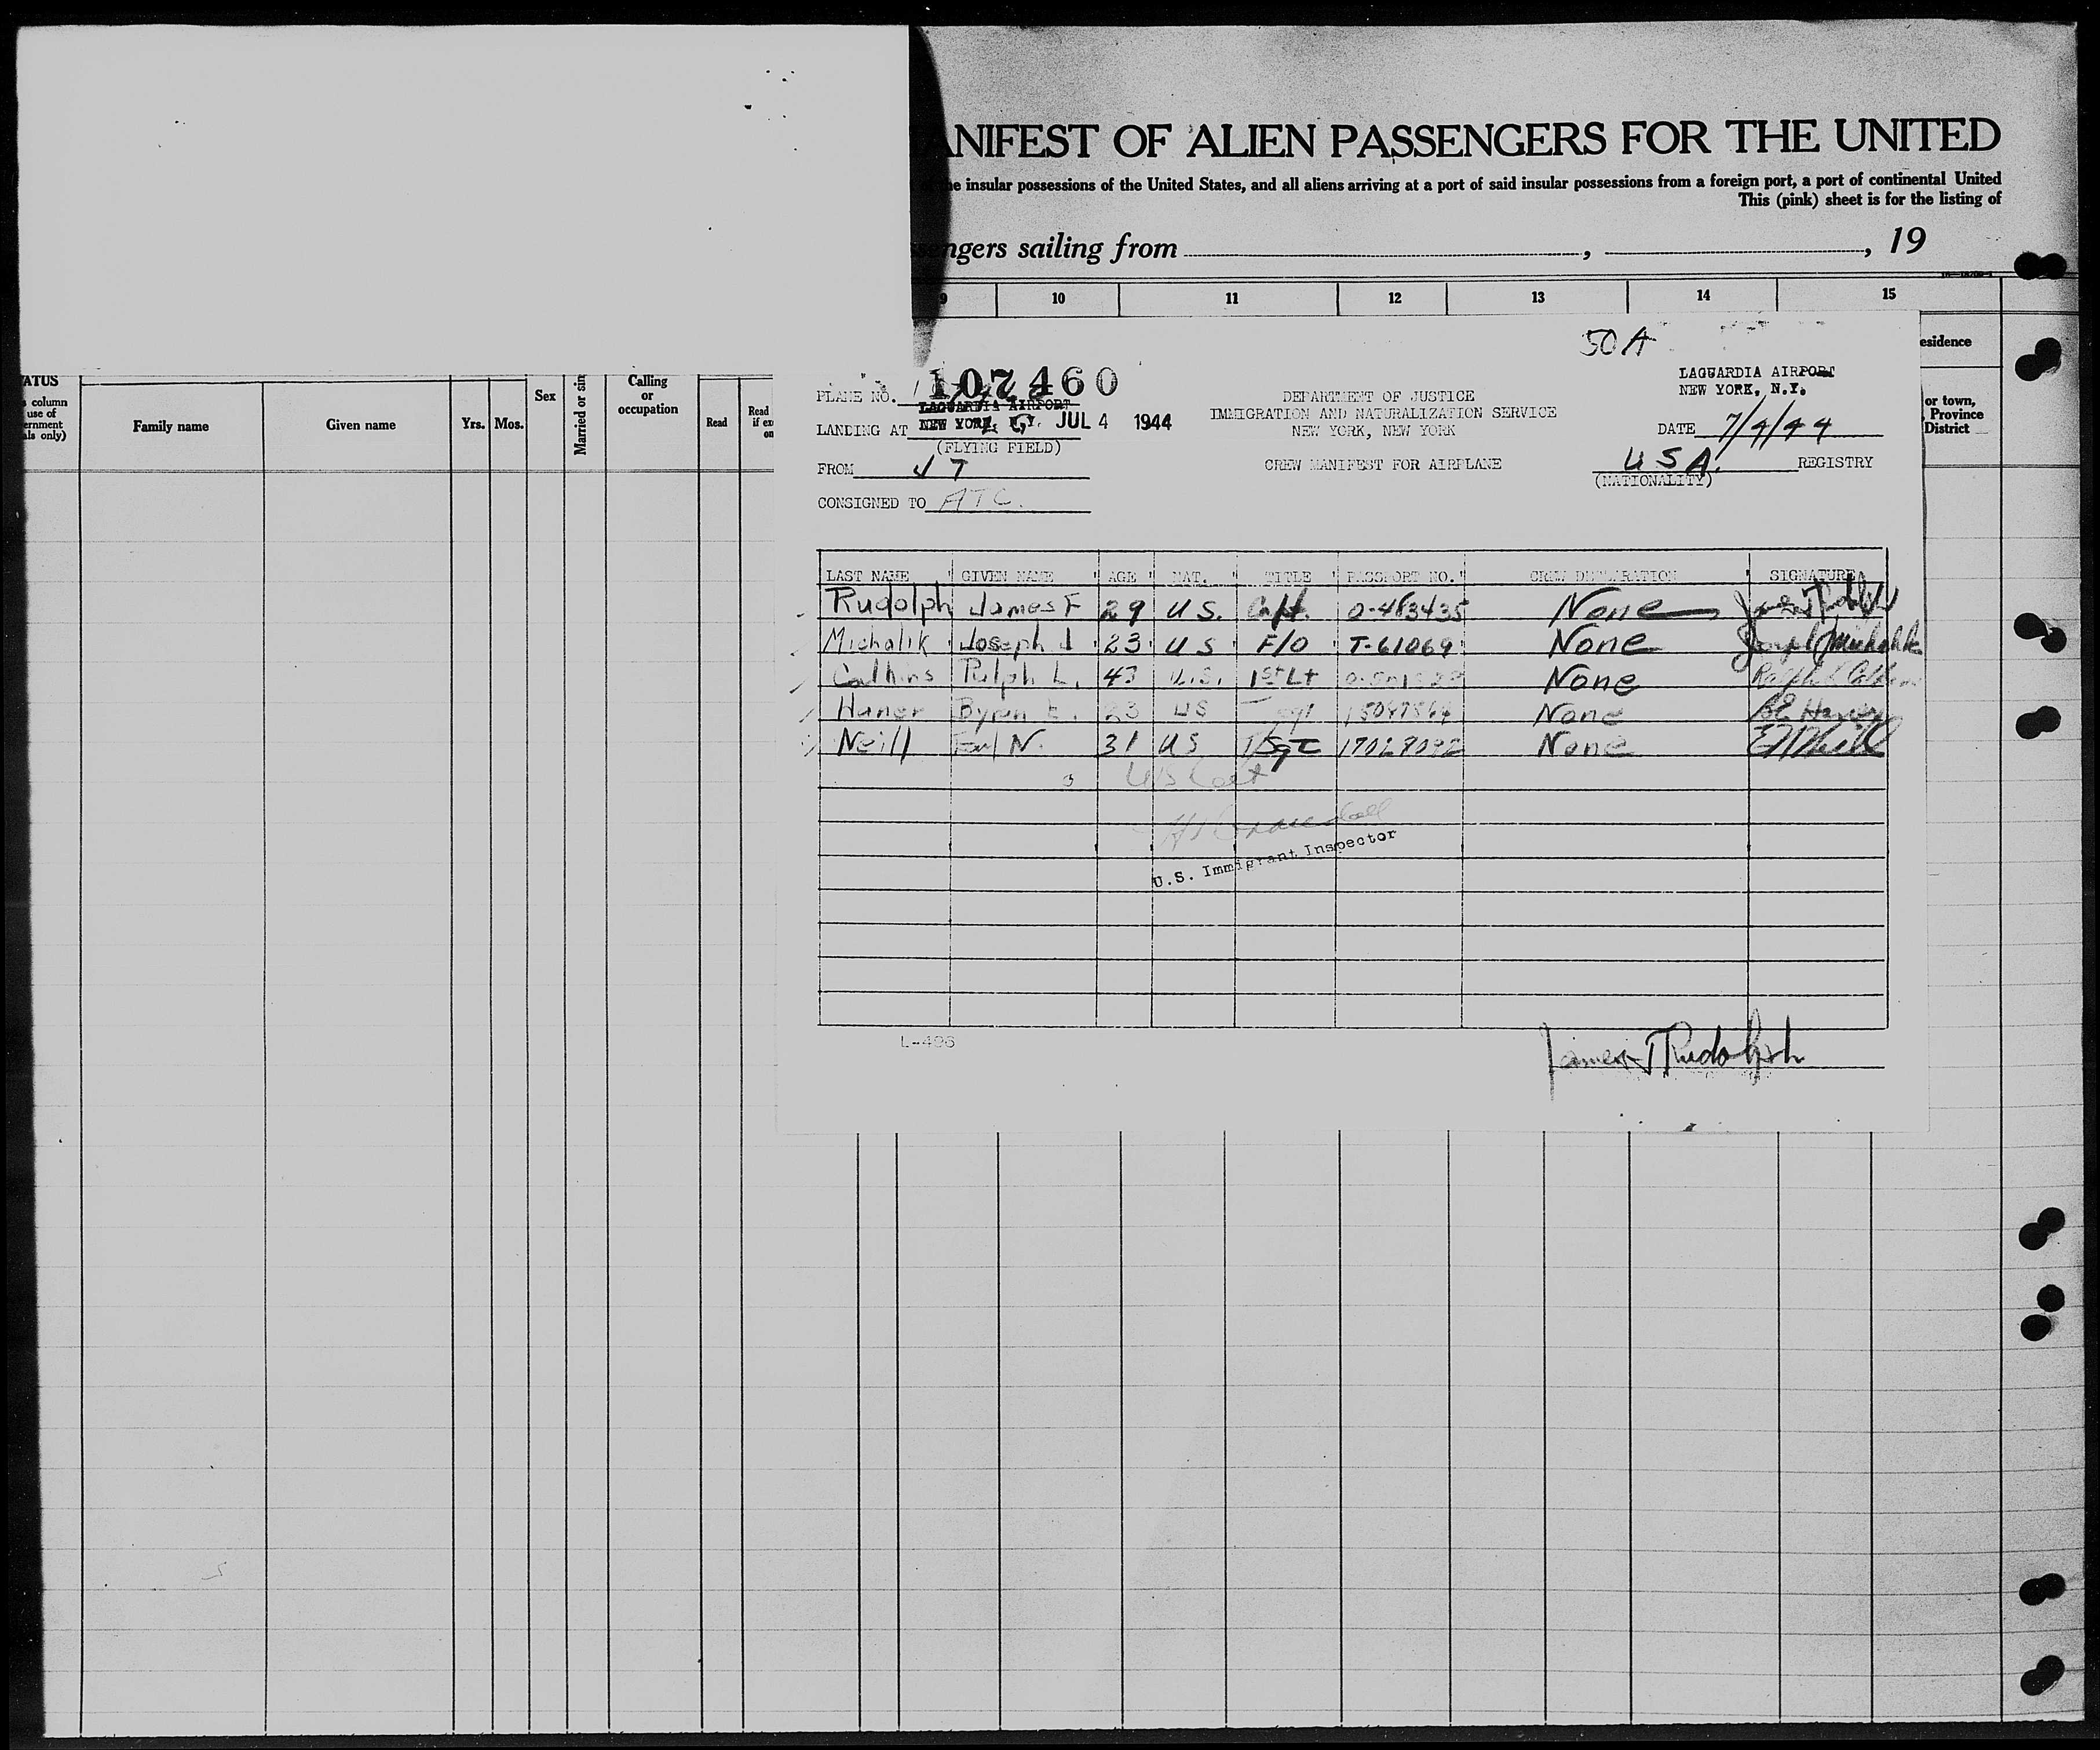 ANIFEST OF ALIEN PASSENGERS FOR THE UNITED
the insular possessions of the United States, and all aliens arriving at a port of said insular possessions from a foreign port, a port of continental United
This (pink) sheet is for the listing of
ngers sailing from , , 19
9 10 11 12 13 14 15
50 A
esidence
or town,
Province
District
ATUS
column
use of
ernment
als only)
Family name
Given name
Yrs.
Mos.
Sex
Married or sin
Calling
or
occupation
Read
Read
if ex
on
107460
PLANE NO.
LAGUARDIA AIRPORT
LANDING AT NEW YORK, N.Y. JUL 4 1944
(FLYING FIELD)
FROM
CONSIGNED TO ATC.
DEPARTMENT OF JUSTICE
IMMIGRATION AND NATURALIZATION SERVICE
NEW YORK, NEW YORK
CREW MANIFEST FOR AIRPLANE
LAGUARDIA AIRPORT
NEW YORK, N.Y.
DATE 7/4/44
USA. REGISTRY
(NATIONALITY)
LAST NAME GIVEN NAME AGE NAT. TITLE PASSPORT NO. CREW DECLARATION SIGNATURE
Rudolph James F 29 U S. Capt. O-483435 None
Michalik Joseph J 23 U S F/O T-61069 None Joseph J Michalik
Calhins Ralph L. 43 U.S. 1st Lt None
Haner Byron E. 23 US 15047564 None B E Haner
Neill N. 31 US T/Sgt 17029092 None
U.S. Immigrant Inspector
L-406
James F Rudolph